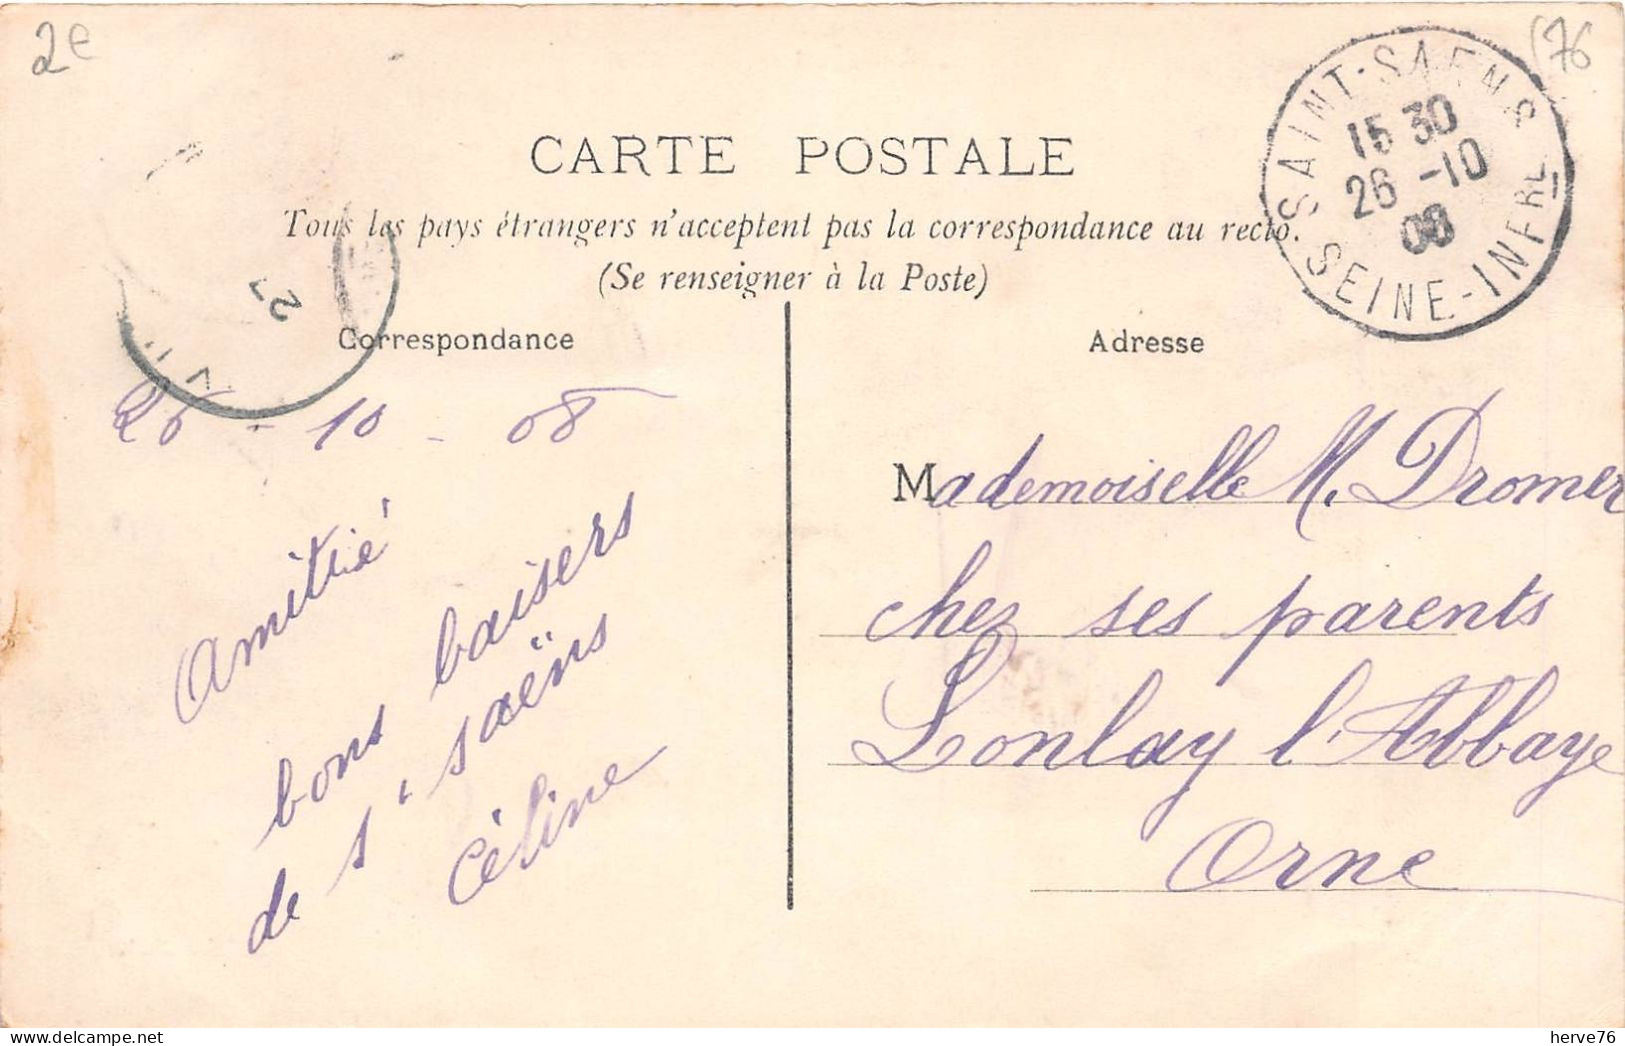 2e
(76
CARTE POSTALE
Tous les pays étrangers n'acceptent pas la correspondance au recto.
(Se renseigner à la Poste)
SAINT-SAENS
15 30
26 -10
08
SEINE-INFRE
27
Correspondance
26 - 10 - 08
Amitié
bons baisers
de St saëns
Céline
Adresse
Mademoiselle M. Dromer
chez ses parents
Lonlay l'Abbaye
Orne
herve76